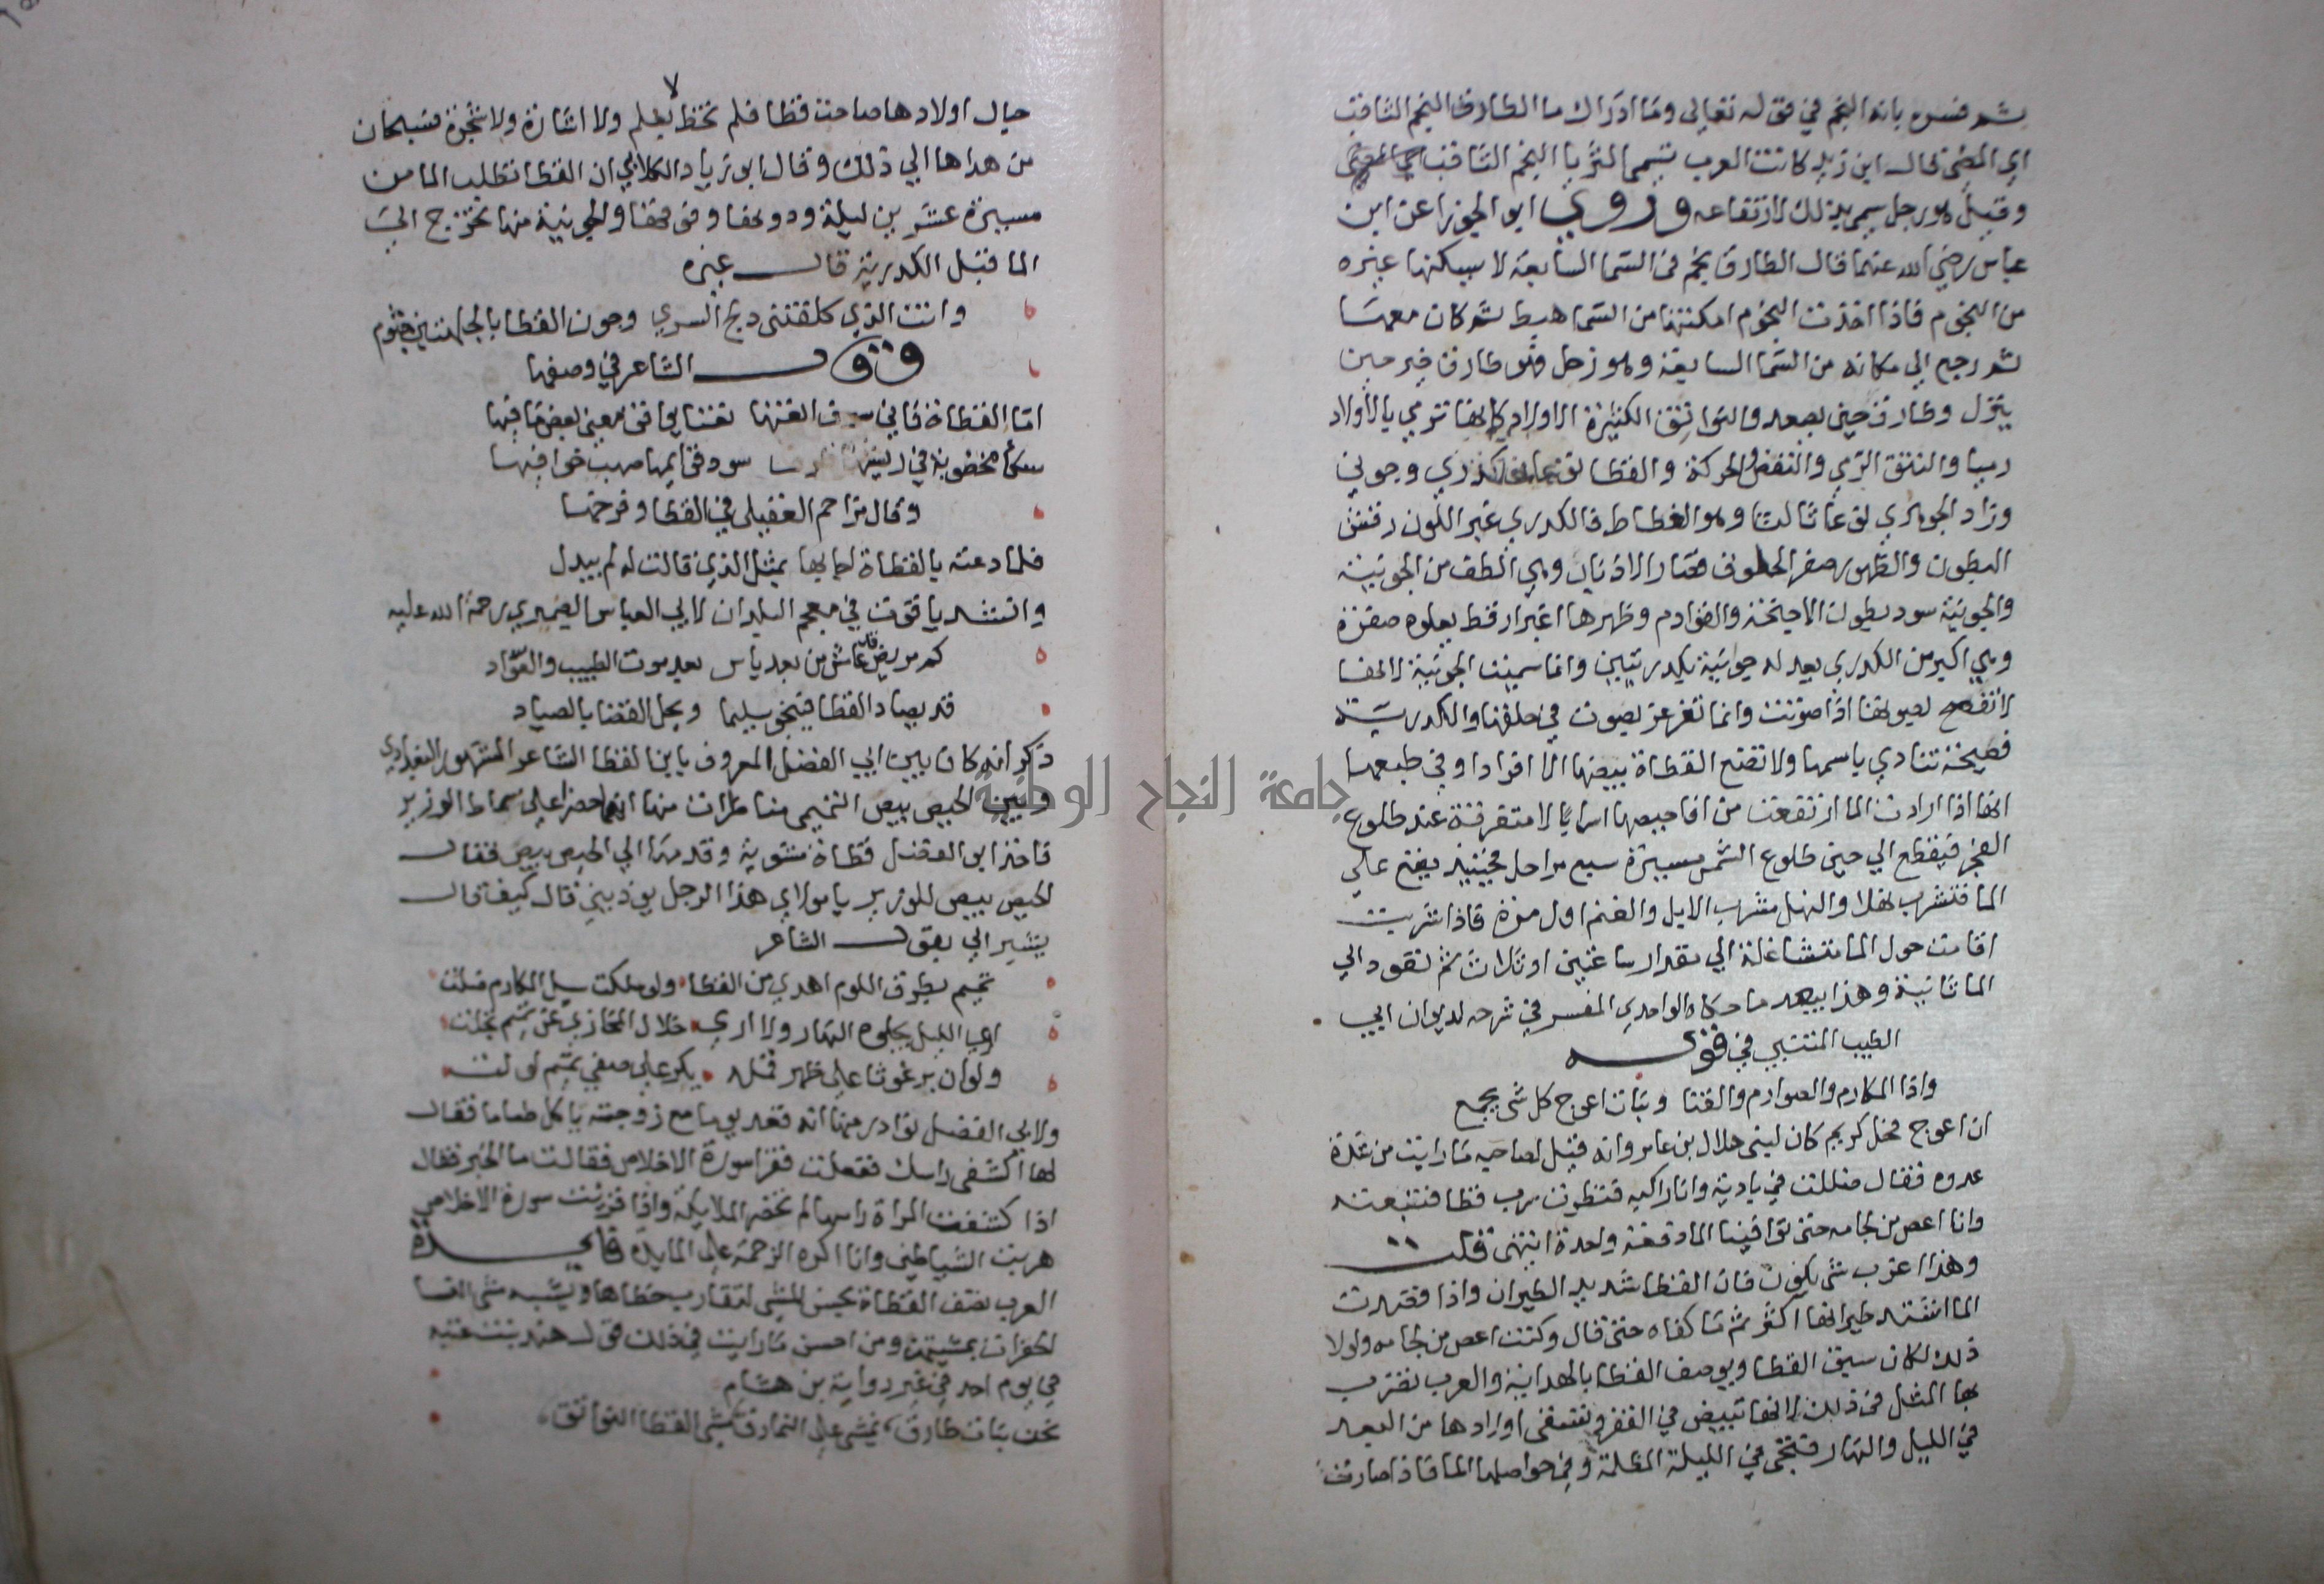 ثم فسره بانه النجم في قوله تعالى وما ادراك ما الطارق النجم الثاقب
اي المضي قال ابن زيد كانت العرب تسمى الثريا النجم الثاقب
وقيل هو زحل سمي بذلك لارتفاعه وروي ابو الجوزا عن ابن
عباس رضي الله عنهما قال الطارق نجم في السما السابعة لا يسكنها غيره
من النجوم فاذا اخذت النجوم امكنتها من السما هبط ثم كان معها
ثم رجع الي مكانه من السما السابعة وهو زحل فهو طارق حين
ينزل وطارق حين يصعد والنواتق الكثيرة الاولاد كانها ترمي بالاولاد
رميا والنتق الرمي والنفض والحركة والقطا نوعان كدري وجوني
وزاد الجوهري نوعا ثالثا وهو الغطاط فالكدري غبر اللون رقش
البطون والظهور صفر الحلوق قصار الاذناب وهي الطف من الجونية
والجونية سود بطون الاجنحة والقوادم وظهرها اغبر ارقط يعلوه صفرة
وهي اكبر من الكدري يعدله جونية بكدريتين وانما سميت الجونية لانها
لا تفصح بصوتها اذا صوتت وانما تغرغر بصوت في حلقها والكدرية
فصيحة تنادي باسمها ولا تضع القطاة بيضها الا افرادا وفي طبعها
انها اذا ارادت الما ارتفعت من افاحيصها اسرابا لا متفرقة عند طلوع
الفجر فيقطع الي حين طلوع الشمس مسيرة سبع مراحل فحينئذ يقع علي
الما فتشرب نهلا والنهل شرب الابل والغنم اول مرة فاذا شربت
اقامت حول الما متشاغلة الي مقدار ساعتين او ثلاث ثم تعود الي
الما ثانية وهذا يبعد ما حكاه الواحدي المفسر في شرحه لديوان ابي
الطيب المتنبي في قوله
واذا المكارم والصوارم والقنا وبنات اعوج كل شي يجمع
ان اعوج فحل كريم كان لبني هلال بن عامر وانه قيل لصاحبه ما رايت من شدة
عدوه فقال ضللت في بادية وانا راكبه فنظرت سرب قطا فتتبعته
وانا اعص من لجامه حتى توافينا الما دفعة واحدة انتهى قلت
وهذا اغرب شي يكون فان القطا شديد الطيران واذا قصدت
الما اشتد طيرانها اكثر ثم ما كفاه حتى قال وكنت اعص من لجامه ولولا
ذلك لكان سبق القطا ويوصف القطا بالهداية والعرب تضرب
بها المثل في ذلك لانها تبيض في القفر وتسقى اولادها من البعد
في الليل والنهار فتجى في الليلة المظلمة وفي حواصلها الما فاذا صارت
٧
حيال اولادها صاحت قطا قطا فلم تخط بعلم ولا اشارة ولا شجرة فسبحان
من هداها الي ذلك وقال ابو زياد الكلابي ان القطا تطلب الما من
مسيرة عشرين ليلة ودونها وفوقها والجونية منها تخرج الي
الما قبل الكدرية قال عنتره
وانت الذي كلفتني دلج السري وجون القطا بالجلهتين جثوم
وقال الشاعر في وصفها
اما القطاة فاني سوف انعتها نعتا يوافق معنى بعض ما فيها
سكا مخطوبة في ريشها سود قوادمها صهب خوافيها
وقال مزاحم العقيلي في القطا وفرخها
فلما دعته بالقطاة اجابها بمثل الذي قالت له لم يبدل
وانشد ياقوت في معجم البلدان لابي العباس الصيمري رحمة الله عليه
كم مريض قد عاش من بعد ياس بعد موت الطبيب والعواد
قد يصاد القطا فينجو سليما ويحل القضا بالصياد
ذكر انه كان بين ابي الفضل المعروف بابن القطا الشاعر المشهور البغدادي
وبين الحيص بيص التميمي مناظرات منها انهما حضرا علي سماط الوزير
فاخذ ابو الفضل قطاة مشوية وقدمها الي الحيص بيص فقال
الحيص بيص للوزير يا مولاي هذا الرجل يوذيني قال كيف قال
يشير الي بقول الشاعر
تميم بطرق اللوم اهدي من القطا ولو سلكت سبل المكارم ضلت
اري الليل يجلوه النهار ولا اري خلال المخازي عن تميم تجلت
ولو ان برغوثا على ظهر قمله يكر على صفي تميم لولت
ولابي الفضل نوادر منها انه قعد يوما مع زوجته ياكل طعاما فقال
لها اكشفى راسك ففعلت فقرا سورة الاخلاص فقالت ما الخبر فقال
اذا كشفت المراة راسها لم تحضر الملايكة واذا قرئت سورة الاخلاص
هربت الشياطين وانا اكره الزحمة على المايدة فايدة
العرب تصف القطاة بحسن المشي لتقارب خطاها ويشبه مشى النسا
الخفرات بمشيتها ومن احسن ما رايت في ذلك قول هند بنت عتبه
في يوم احد في غير رواية بن هشام
نحن بنات طارق نمشي على النمارق مشى القطا النواتق
جامعة النجاح الوطنية